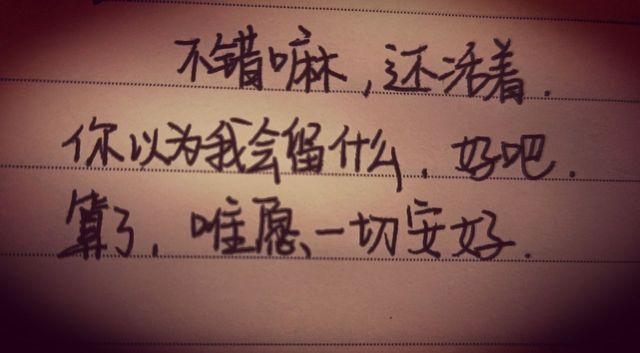 不错嘛,还活着.
你以为我会留什么.好吧.
算了.唯愿、一切安好.